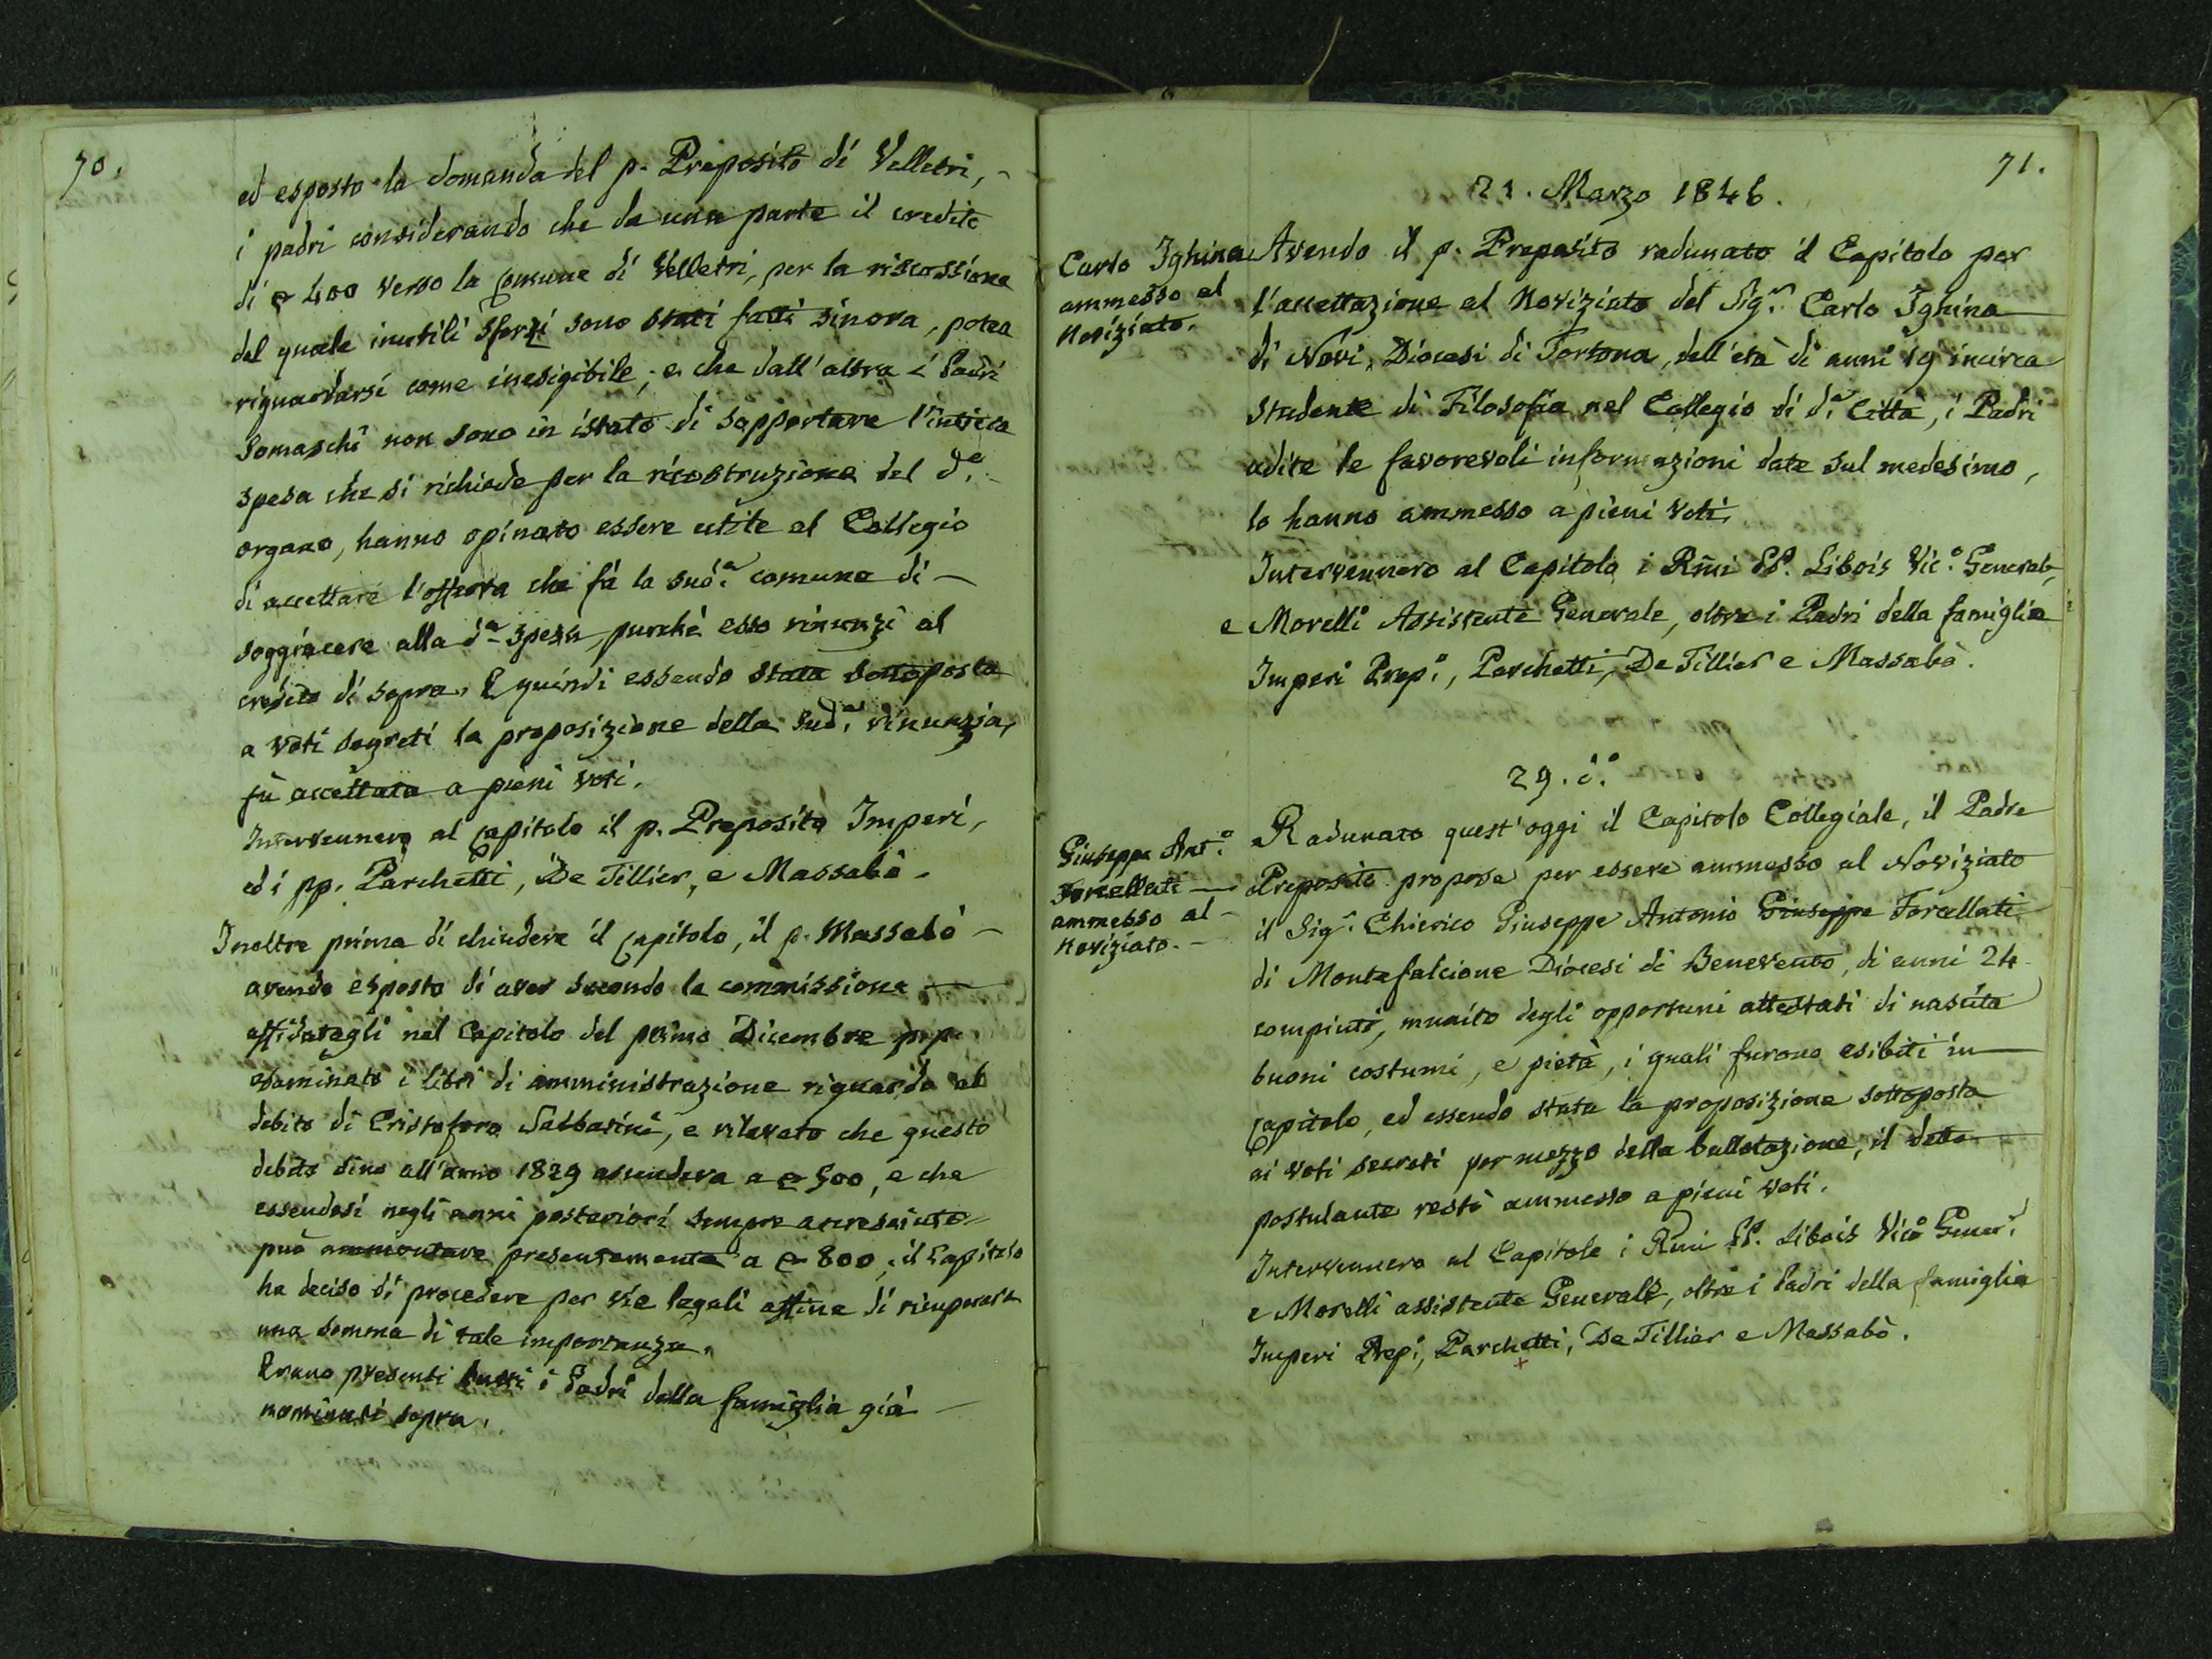 70.
ed esposta la domanda del p. Preposito di Velletri,
i padri considerando che da una parte il credito
di 400 verso la Comune di Velletri, per la riscossione
del quale inutili sforzi sono stati fatti sinora, potea
riguardarsi come inesigibile; e che dall'altra i Padri
Somaschi non sono in istato di sopportare l'intiera
spesa che si richiede per la ricostruzione del d.o
organo, hanno opinato essere utile al Collegio
di accettare l'offerta che fà la sud.a comune di
soggiacere alla d.a spesa, purché esso rinunzi al
credito di sopra. E quindi essendo stata sottoposta
a voti segreti la proposizione della sud.a rinunzia,
fù accettata a pieni voti.
Intervennero al Capitolo il p. Preposito Imperi,
ed i pp. Parchetti, De Tillier, e Massabò.
Inoltre prima di chiudere il Capitolo, il p. Massabò
avendo esposto di aver secondo la commissione
affidatagli nel Capitolo del primo Dicembre p.p.
esaminato i libri di amministrazione riguardo al
debito di Cristoforo Salbatini, e rilevato che questo
debito sino all'anno 1829 ascendeva a 500, e che
essendosi negli anni posteriori sempre accresciuto
può ammontare presentemente a 800, il Capitolo
ha deciso di procedere per vie legali affine di ricuperare
una somma di tale importanza.
Erano presenti tutti i Padri della famiglia già
nominati sopra.
71.
21. Marzo 1846.
Carlo Ighina
ammesso al
Noviziato.
Avendo il p. Preposito radunato il Capitolo per
l'accettazione al Noviziato del Sig.r Carlo Ighina
di Novi, Diocesi di Tortona, dell'età di anni 19 incirca
studente di Filosofia nel Collegio di d.a Città, i Padri
udite le favorevoli informazioni date sul medesimo,
lo hanno ammesso a pieni voti.
Intervennero al Capitolo i Rmi PP. Libois Vic.o Generale,
e Morelli Assistente Generale, oltre i Padri della famiglia
Imperi Prep.o, Parchetti, De Tillier e Massabò.
29. d.o
Giuseppe Ant.o
Forcellati
ammesso al
Noviziato.
Radunato quest'oggi il Capitolo Collegiale, il Padre
Preposito propose per essere ammesso al Noviziato
il Sig.r Chierico Giuseppe Antonio Giuseppe Forcellati
di Montefalcione Diocesi di Benevento, di anni 24
compiuti, munito degli opportuni attestati di nascita
buoni costumi, e pietà, i quali furono esibiti in
Capitolo, ed essendo stata la proposizione sottoposta
ai voti secreti per mezzo della ballotazione, il detto
postulante restò ammesso a pieni voti.
Intervennero al Capitolo i Rmi PP. Libois Vic.o Gener.l
e Morelli assistente Generale, oltre i Padri della famiglia
Imperi Prep.o, Parchetti, De Tillier e Massabò.